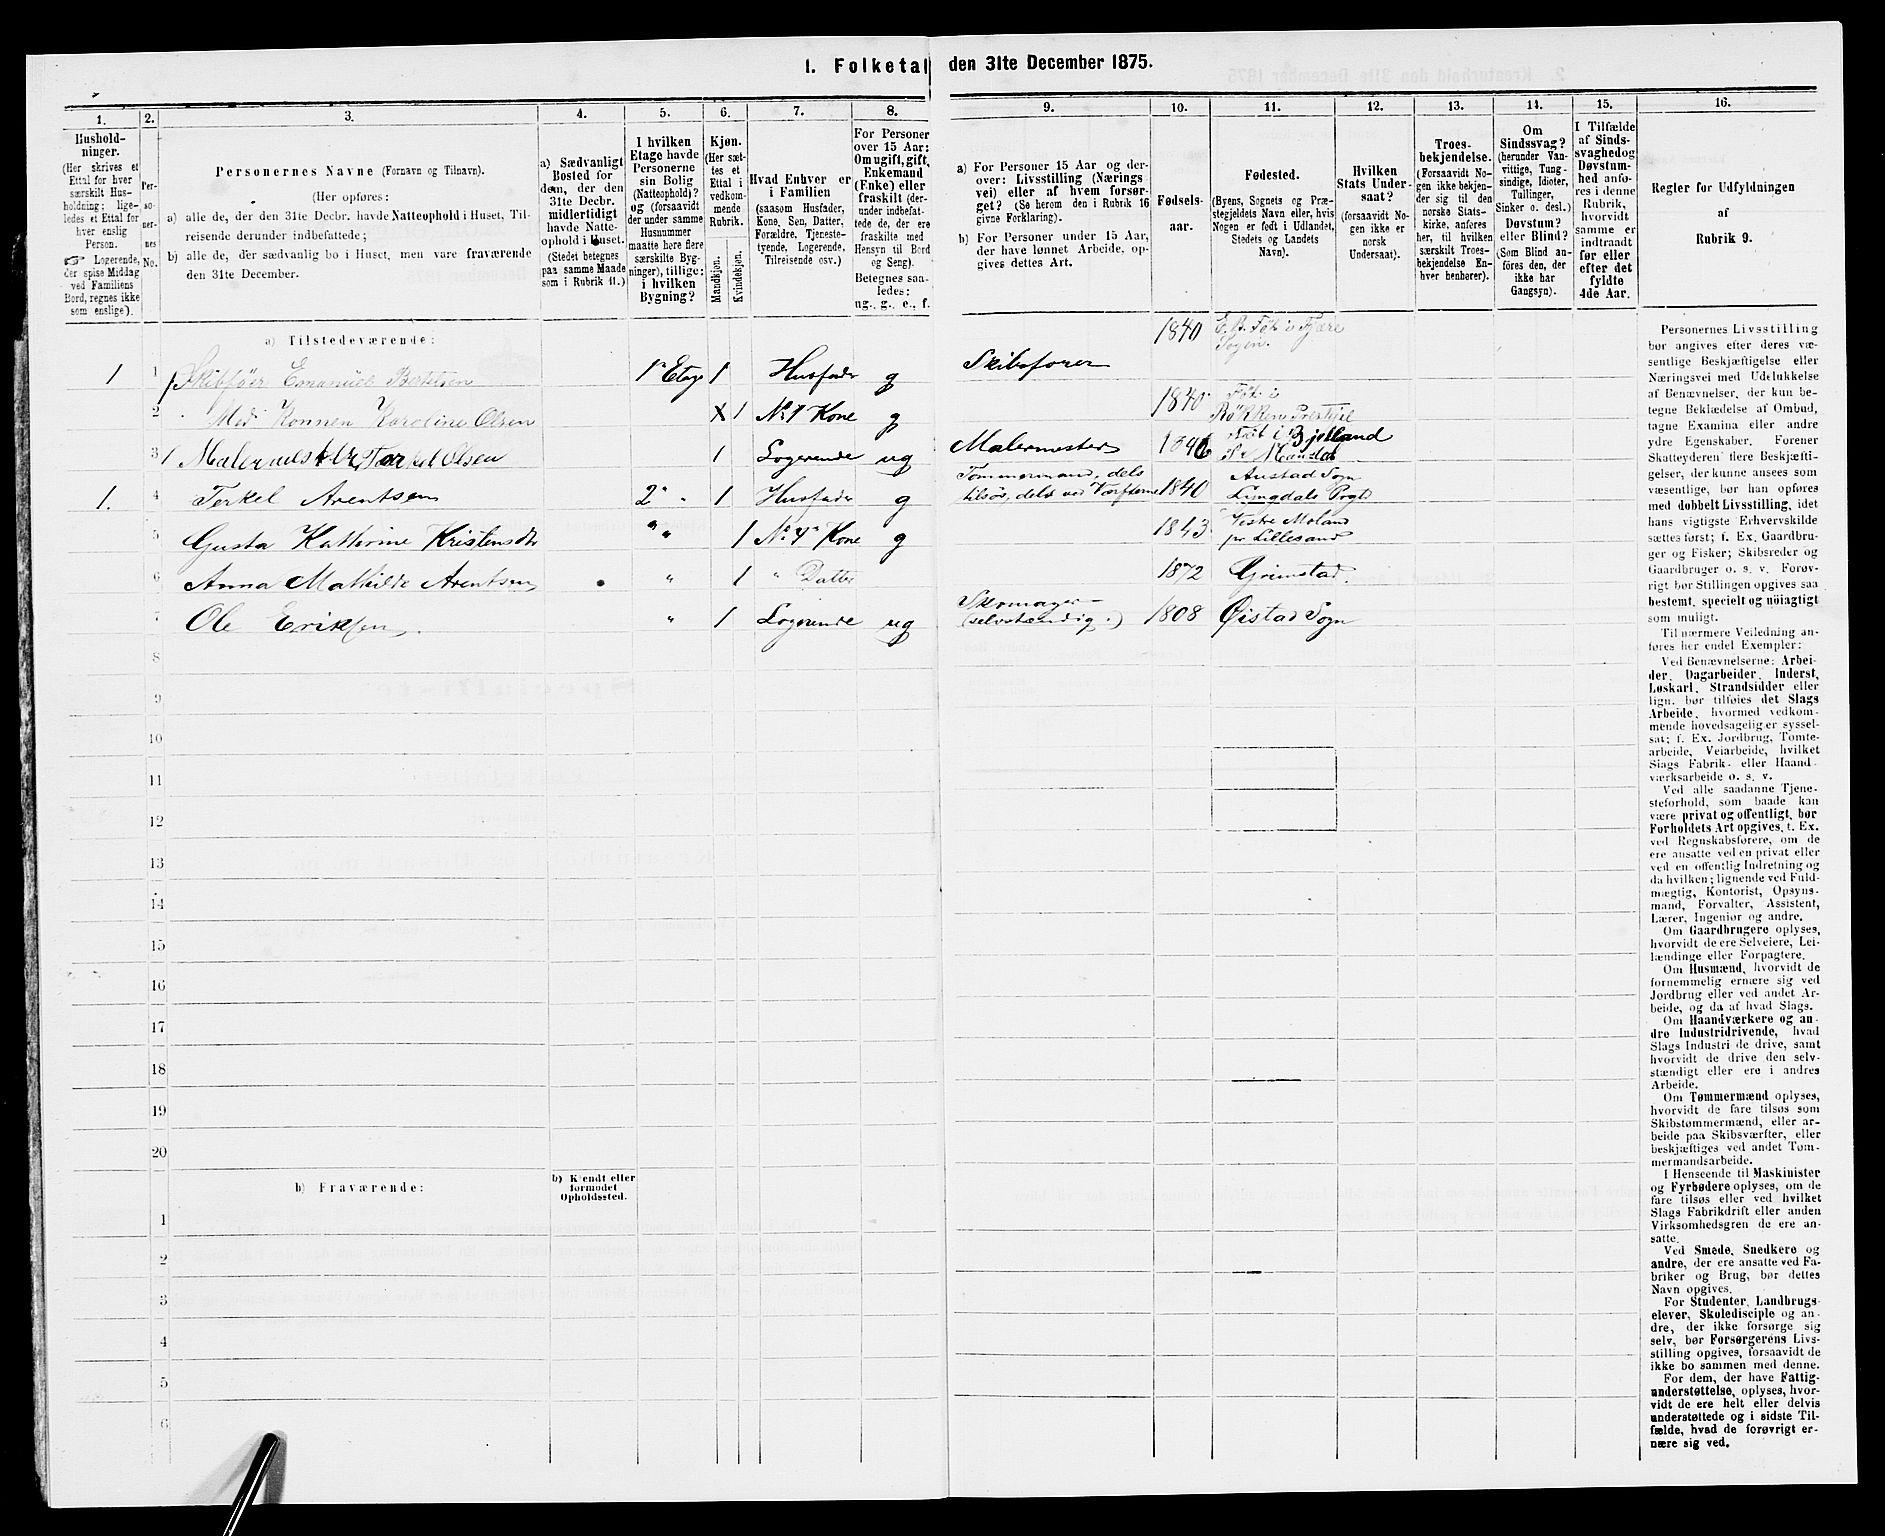 1. Folketal den 31te December 1875.
1. 2. 3. 4. 5. 6. 7. 8. 9. 10. 11. 12. 13. 14. 15. 16.
Hushold-
ninger.
(Her skrives et
Ettal for hver
særskilt Hus-
holdning; lige-
ledes et Ettal for
hver enslig
Person.
☞ Logerende,
der spise Middag
ved Familiens
Bord, regnes ikke
som enslige).
Per-
so-
ner-
nes
No.
Personernes Navne (Fornavn og Tilnavn).
(Her opføres:
a) alle de, der den 31te Decbr. havde Natteophold i Huset, Til-
reisende derunder indbefattede;
b) alle de, der sædvanlig bo i Huset, men vare fraværende
den 31te December.
a) Sædvanligt
Bosted for
dem, der den
31te Decbr.
midlertidigt
havde Natte-
ophold i Huset.
(Stedet betegnes
paa samme Maade
som i Rubrik 11.)
I hvilken
Etage havde
Personerne
sin Bolig
(Natteophold)?
og (forsaavidt
der under samme
Husnummer
maatte høre flere
særskilte Byg-
ninger), tillige:
i hvilken
Bygning?
Kjøn.
(Her sæt-
tes et
Ettal i
vedkom-
mende
Rubrik.
Mandkjøn.
Kvindekjøn.
Hvad Enhver er
i Familien
(saasom Husfader,
Kone, Søn, Datter,
Forældre, Tjeneste-
tyende, Logerende,
Tilreisende osv.)
For Personer
over 15 Aar:
Om ugift, gift,
Enkemand
(Enke) eller
fraskilt (der-
under indbefat-
tede de, der ere
fraskilte med
Hensyn til Bord
og Seng).
Betegnes saa-
ledes:
ug., g., e., f.
a) For Personer 15 Aar og der-
over: Livsstilling (Nærings-
vei) eller af hvem forsør-
get? (Se herom den i Rubrik 16
givne Forklaring).
b) For Personer under 15 Aar,
der have lønnet Arbeide, op-
gives dettes Art.
Fødsels-
aar.
Fødested.
(Byens, Sognets og Præ-
stegjeldets Navn eller, hvis
Nogen er født i Udlandet,
Stedets og Landets
Navn).
Hvilken
Stats Under-
saat?
(forsaavidt No-
gen ikke er
norsk
Undersaat).
Troes-
bekjendelse.
(Forsaavidt No-
gen ikke bekjen-
der sig til den
norske Stats-
kirke, anføres
her, til hvilken
særskilt Troes-
bekjendelse En-
hver henhører).
Om
Sindssvag?
(herunder Van-
vittige, Tung-
sindige, Idioter,
Tullinger,
Sinker o. desl.)
Døvstum?
eller Blind?
(Som Blind an-
føres den, der
ikke har
Gangsyn).
I Tilfælde
af Sinds-
svaghed og
Døvstum-
hed anfø-
res i denne
Rubrik,
hvorvidt
samme er
indtraadt
før eller
efter det
fyldte
4de Aar.
Regler for Udfyldningen
af
Rubrik 9.
a) Tilstedeværende:
1 1 Skibsfører Emanuel Bertelsen 1r Etage 1 Husfader g Skibsfører 1840 Fød i Fjære Sogn.
2 Med Konnen Karoline Olsen X 1 No 1 Kone g 1840 Fød i
3 Malermester Torkel Olsen 1 Logerende ug Malermester 1846 Fød i Bjelland
1. 4 Terkel Arentsen 2 " 1 Husfader g Tømmermand, dels tilsøs, dels ved Værfterne 1840 Austad Sogn Lyngdals Prgtd
5 Gusta Katherine Kristensdtr " " 1 No 4 Kone g 1843 Vestre Moland pr Lillesand
6 Anna Mathilde Arentsen " 1 " Datter 1872 Grimstad.
7 Ole Eriksen. " 1 Logerende ug Skomager (selvstændig.) 1808 Øistad Sogn
8
9
10
11
12
13
14
15
16
17
18
19
20
b) Fraværende:
b) Kjendt eller
formodet
Opholdssted.
1
2
3
4
5
6
Personernes Livsstilling
bør angives efter deres væ-
sentlige Beskjæftigelse eller
Næringsvei med Udelukkelse
af Benævnelser, der kun be-
tegne Beklædelse af Ombud,
tagne Examina eller andre
ydre Egenskaber. Forener
Skatteyderen flere Beskjæfti-
gelser, der kunne ansees som
væsentlige, bør han opføres
med dobbelt Livsstilling, idet
hans vigtigste Erhvervskilde
sættes først; f. Ex. Gaardbru-
ger og Fisker; Skibsreder og
Gaardbruger o. s. v. Forøv-
rigt bør Stillingen opgives saa
bestemt, specielt og nøiagtigt
som muligt.
Til nærmere Veiledning an-
føres her endel Exempler:
Ved Benævnelserne: Arbei-
der, Dagarbeider, Inderst,
Løskarl, Strandsidder eller
lign. bør tilføies det Slags
Arbeide, hvormed vedkom-
mende hovedsagelig er syssel-
sat; f. Ex. Jordbrug, Tomte-
arbeide, Veiarbeide, hvilket
Slags Fabrik- eller Haand-
værksarbeide o. s. v.
Ved alle saadanne Tjene-
steforhold, som baade kan
være privat og offentligt, bør
Forholdets Art opgives, f. Ex.
ved Regnskabsførere, om de
ere ansatte ved en privat eller
ved en offentlig Indretning og
da hvilken; lignende ved Fuld-
mægtig, Kontorist, Opsyns-
mand, Forvalter, Assistent,
Lærer, Ingeniør og andre.
Om Gaardbrugere oplyses,
hvorvidt de ere Selveiere, Lei-
lændinge eller Forpagtere.
Om Husmænd, hvorvidt de
fornemmelig ernære sig ved
Jordbrug eller ved andet Ar-
beide, og da af hvad Slags.
Om Haandværkere og an-
dre Industridrivende, hvad
Slags Industri de drive, samt
hvorvidt de drive den selv-
stændigt eller ere i andres
Arbeide.
Om Tømmermænd oplyses,
hvorvidt de fare tilsøs som
Skibstømmermænd, eller ar-
beide paa Skibsværfter, eller
beskjæftiges ved andet Tøm-
mermandsarbeide.
I Henseende til Maskinister
og Fyrbødere oplyses, om de
fare tilsøs eller ved hvilket
Slags Fabrikdrift eller anden
Virksomhedsgren de ere an-
satte.
Ved Smede, Snedkere og
andre, der ere ansatte ved Fa-
briker og Brug, bør dettes
Navn opgives.
For Studenter, Landbrugs-
elever, Skoledisciple og an-
dre, der ikke forsørge sig
selv, bør Forsørgerens Livs-
stilling opgives, forsaavidt de
ikke bo sammen med denne.
For dem, der have Fattig-
understøttelse, oplyses, hvor-
vidt de ere helt eller delvis
understøttede og i sidste Til-
fælde, hvad de forøvrigt er-
nære sig ved.